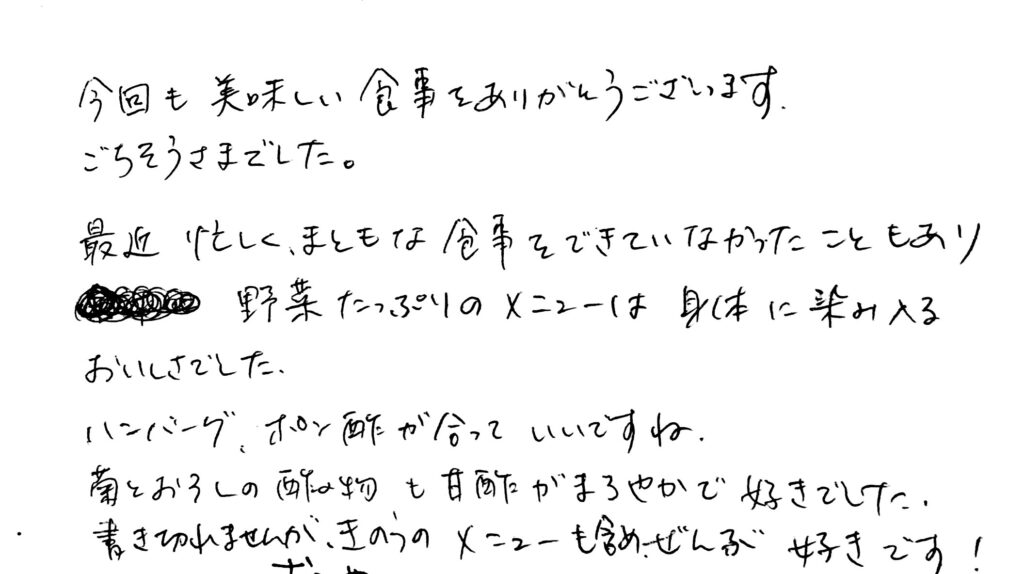 今回も美味しい食事をありがとうございます.
ごちそうさまでした。
最近忙しく、まともな食事をできていなかったこともあり
野菜たっぷりのメニューは身体に染み入る
おいしさでした.
ハンバーグ、ポン酢が合っていいですね.
菊とおろしの酢の物も甘酢がまろやかで好きでした.
書き切れませんが、きのうのメニューも含め、ぜんぶ好きです!